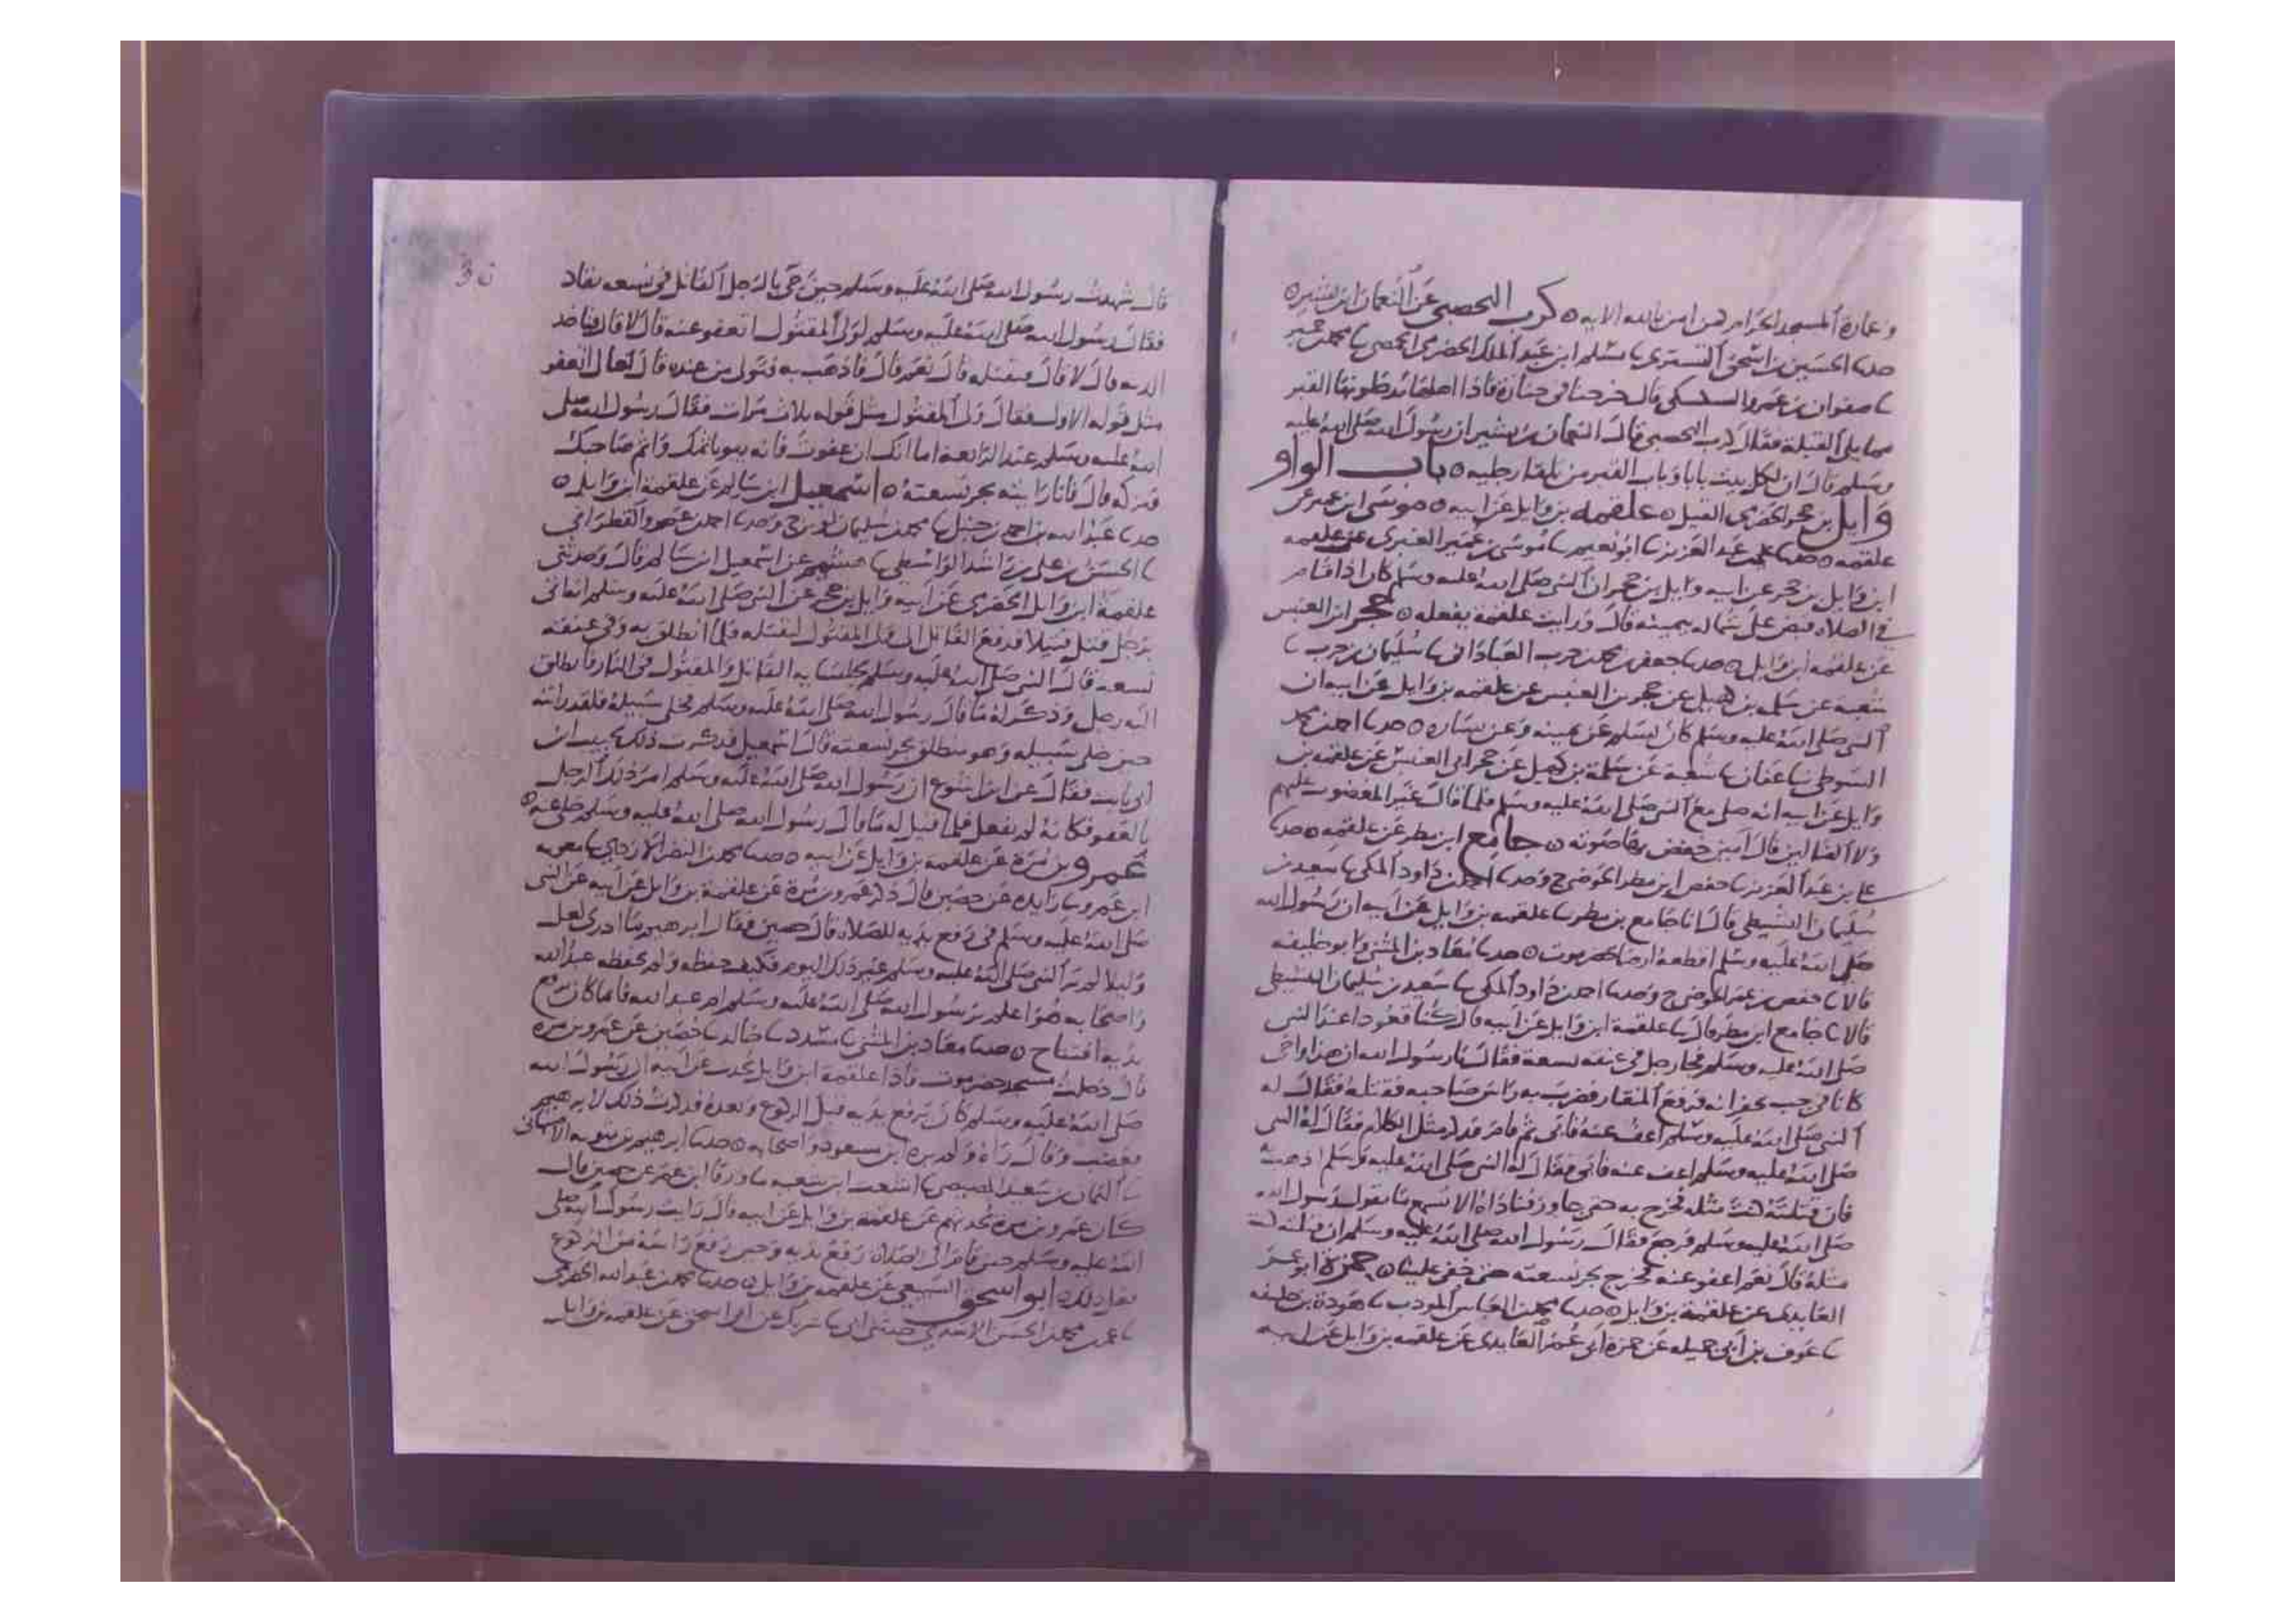 وعمارة المسجد الحرام كمن امن بالله الايه ٥ كرب اليحصبي عن النعمان ابن بشير ٥
حدثنا الحسين بن اسحق التستري ثنا سلم ابن عبد الملك الحضرى الحمصي ثنا محمد بن حمير
ثنا صفوان بن عمرو السكسكي قال خرجنا في جنازة فاذا اهلها القبر
مما يلي القبلة فقال كرب اليحصبي قال النعمان بن بشير ان رسول الله صلى الله عليه
وسلم قال ان لكل بيت بابا وباب القبر من تلقا رجليه ٥ باب الواو
وايل بن حجر الحضرى القيل ٥ علقمه بن وايل عن ابيه ٥ موسى ابن عمير عن
علقمه ٥ حدثنا على بن عبد العزيز ثنا ابو نعيم ثنا موسى بن عمير العنبرى عن علقمه
ابن وايل بن حجر عن ابيه وايل بن حجر ان النبي صلى الله عليه وسلم كان اذا قام
في الصلاه قبض على شماله بيمينه قال ورايت علقمة يفعله ٥ حجر ابن العنبس
عن علقمه ابن وايل ٥ حدثنا جعفر بن محمد بن حرب العباداني ثنا سليمان بن حرب ثنا
شعبة عن سلمه بن كهيل عن حجر بن العنبس عن علقمه بن وايل عن ابيه ان
النبي صلى الله عليه وسلم كان يسلم عن يمينه وعن يساره ٥ حدثنا احمد بن محمد
السوطي ثنا عفان ثنا شعبة عن سلمة بن كهيل عن حجر ابى العنبس عن علقمه بن
وايل عن ابيه انه صلى مع النبي صلى الله عليه وسلم فلما قال غير المغضوب عليهم
ولا الضالين قال امين خفض بها صوته ٥ جامع ابن مطر عن علقمه ٥ حدثنا
على بن عبد العزيز ثنا حفص ابن عمر الحوضي ح وحدثنا احمد بن داود المكي ثنا سعيد بن
سليمان النشيطي قال انا جامع بن مطر ثنا علقمه بن وايل عن ابيه ان رسول الله
صلى الله عليه وسلم اقطعه ارضا بحضرموت ٥ حدثنا معاذ بن المثنى وابو خليفه
قالا ثنا حفص بن عمر الحوضي ح وحدثنا احمد بن داود المكي ثنا سعيد بن سليمان النشيطي
قالا ثنا جامع ابن مطر قال ثنا علقمة ابن وايل عن ابيه قال كنا قعودا عند النبي
صلى الله عليه وسلم فجا رجل في عنقه نسعة فقال يا رسول الله ان هذا واخي
كانا في جب يحفرانه فرفع المنقار فضرب به راس صاحبه فقتله فقال له
النبي صلى الله عليه وسلم اعف عنه فابى ثم قام فذكر مثل الكلام فقال له النبي
صلى الله عليه وسلم اعف عنه فابى فقال له النبي صلى الله عليه وسلم اذهب
فان قتلته كنت مثله فخرج به حتى جاوز فناداه الا تسمع ما يقول رسول الله
صلى الله عليه وسلم فرجع فقال رسول الله صلى الله عليه وسلم ان قتلته كنت
مثله قال نعم اعفو عنه فخرج يجر نسعته حتى خفي علينا ٥ حمزة ابو عمر
العايدي عن علقمة بن وايل ٥ حدثنا محمد بن العباس المودب ثنا هوذة بن خليفه
ثنا عوف بن ابي جميله عن حمزة ابى عمر العايدى عن علقمه بن وايل عن ابيه
قال شهدت رسول الله صلى الله عليه وسلم حين جي بالرجل القاتل في نسعه يقاد
فقال رسول الله صلى الله عليه وسلم لولى المقتول اتعفو عنه قال لا قال فتاخذ
الديه قال لا قال فتقتله قال نعم قال فاذهب به فتولى من عنده قال تعال اتعفو
مثل قوله الاول فقال ولى المقتول مثل قوله ثلاث مرات فقال رسول الله صلى
الله عليه وسلم عند الرابعة اما انك ان عفوت فانه يبو باثمك واثم صاحبك
فتركه قال فانا رايته يجر نسعته ٥ اسمعيل ابن سالم عن علقمة ابن وايل ٥
حدثنا عبد الله بن احمد بن حنبل ثنا محمد بن سليمان لوين ح وحدثنا احمد بن عمرو القطراني
ثنا الحسن بن على بن راشد الواسطي ثنا هشيم عن اسمعيل ابن سالم قال وحدثني
علقمة ابن وايل الحضرى عن ابيه وايل بن حجر عن النبي صلى الله عليه وسلم انه اتي
برجل قتل قتيلا فدفع القاتل الى ولى المقتول ليقتله فلما انطلق به وفي عنقه
نسعه قال النبي صلى الله عليه وسلم لجلسايه القاتل والمقتول في النار فانطلق
اليه رجل وذكر له ما قال رسول الله صلى الله عليه وسلم فخلى سبيله فلقد رايته
حين خلى سبيله وهو منطلق يجر نسعته قال اسمعيل فذكرت ذلك لحبيب ابن
ابى ثابت فقال عن ابن اشوع ان رسول الله صلى الله عليه وسلم امر ذلك الرجل
بالعفو فكانه لم يفعل فلما قيل له ما قال رسول الله صلى الله عليه وسلم خلى عنه ٥
عمرو بن مرة عن علقمة بن وايل عن ابيه ٥ حدثنا محمد بن النضر الازدي ثنا معويه
ابن عمرو ثنا زايده عن حصين قال ذكر عمرو بن مرة عن علقمة بن وايل عن ابيه عن النبي
صلى الله عليه وسلم في رفع يديه للصلاه قال حصين فقال ابرهيم ما ادرى لعل
وايلا لم ير النبي صلى الله عليه وسلم غير ذلك اليوم فكيف حفظه ولم يحفظه عبد الله
واصحابه هوا اعلم برسول الله صلى الله عليه وسلم ام عبد الله فانما كان يرفع
يديه افتتاح ٥ حدثنا معاذ بن المثنى ثنا مسدد ثنا خالد ثنا حصين عن عمرو بن مره
قال دخلت مسجد حضرموت فاذا علقمة ابن وايل يحدث عن ابيه ان رسول الله
صلى الله عليه وسلم كان يرفع يديه قبل الركوع وبعده فذكرت ذلك لابرهيم
فغضب وقال راه ولم يره ابن مسعود واصحابه ٥ حدثنا ابرهيم بن متويه الاصبهاني
ثنا النعمان بن سعيد المصيصي ثنا اشعث ابن شعبه ثنا ورقا ابن عمر عن حصين قال
كان عمرو بن مره يحدثهم عن علقمة بن وايل عن ابيه قال رايت رسول الله صلى
الله عليه وسلم حين قام الى الصلاة رفع يديه وحين رفع راسه من الركوع
فعل ذلك ٥ ابو اسحق السبيعي عن علقمه بن وايل ٥ حدثنا محمد بن عبد الله الحضرمي
ثنا عمر بن محمد بن الحسن الاسدي حدثني ابى ثنا شريك عن ابو اسحق عن علقمه بن وايل